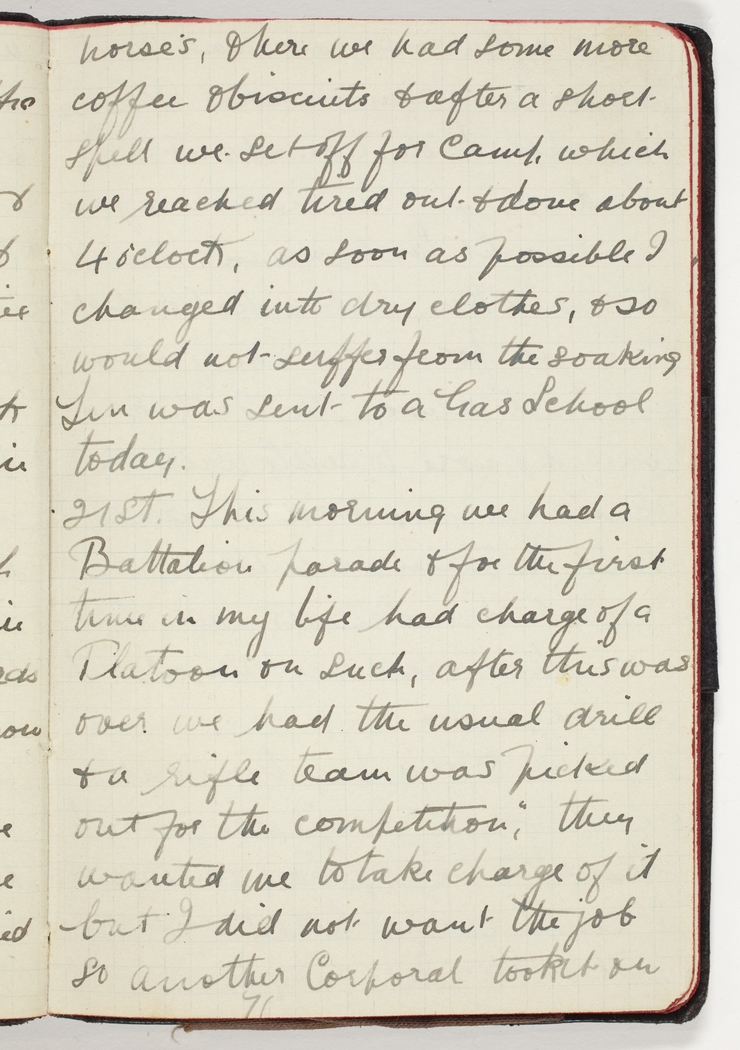 horse's, & here we had some more
coffee & biscuits & after a short
spell we set off for Camp, which
we reached tired out & done about
4 o'clock, as soon as possible I
changed into dry clothes, & so
would not suffer from the soaking
Len was sent to a Gas School
today.
21st. This morning we had a
Battalion parade & for the first
time in my life had charge of a
Platoon on such, after this was
over we had the usual drill
& a rifle team was picked
out for the competition", they
wanted me to take charge of it
but I did not want the job
so another Corporal took it on